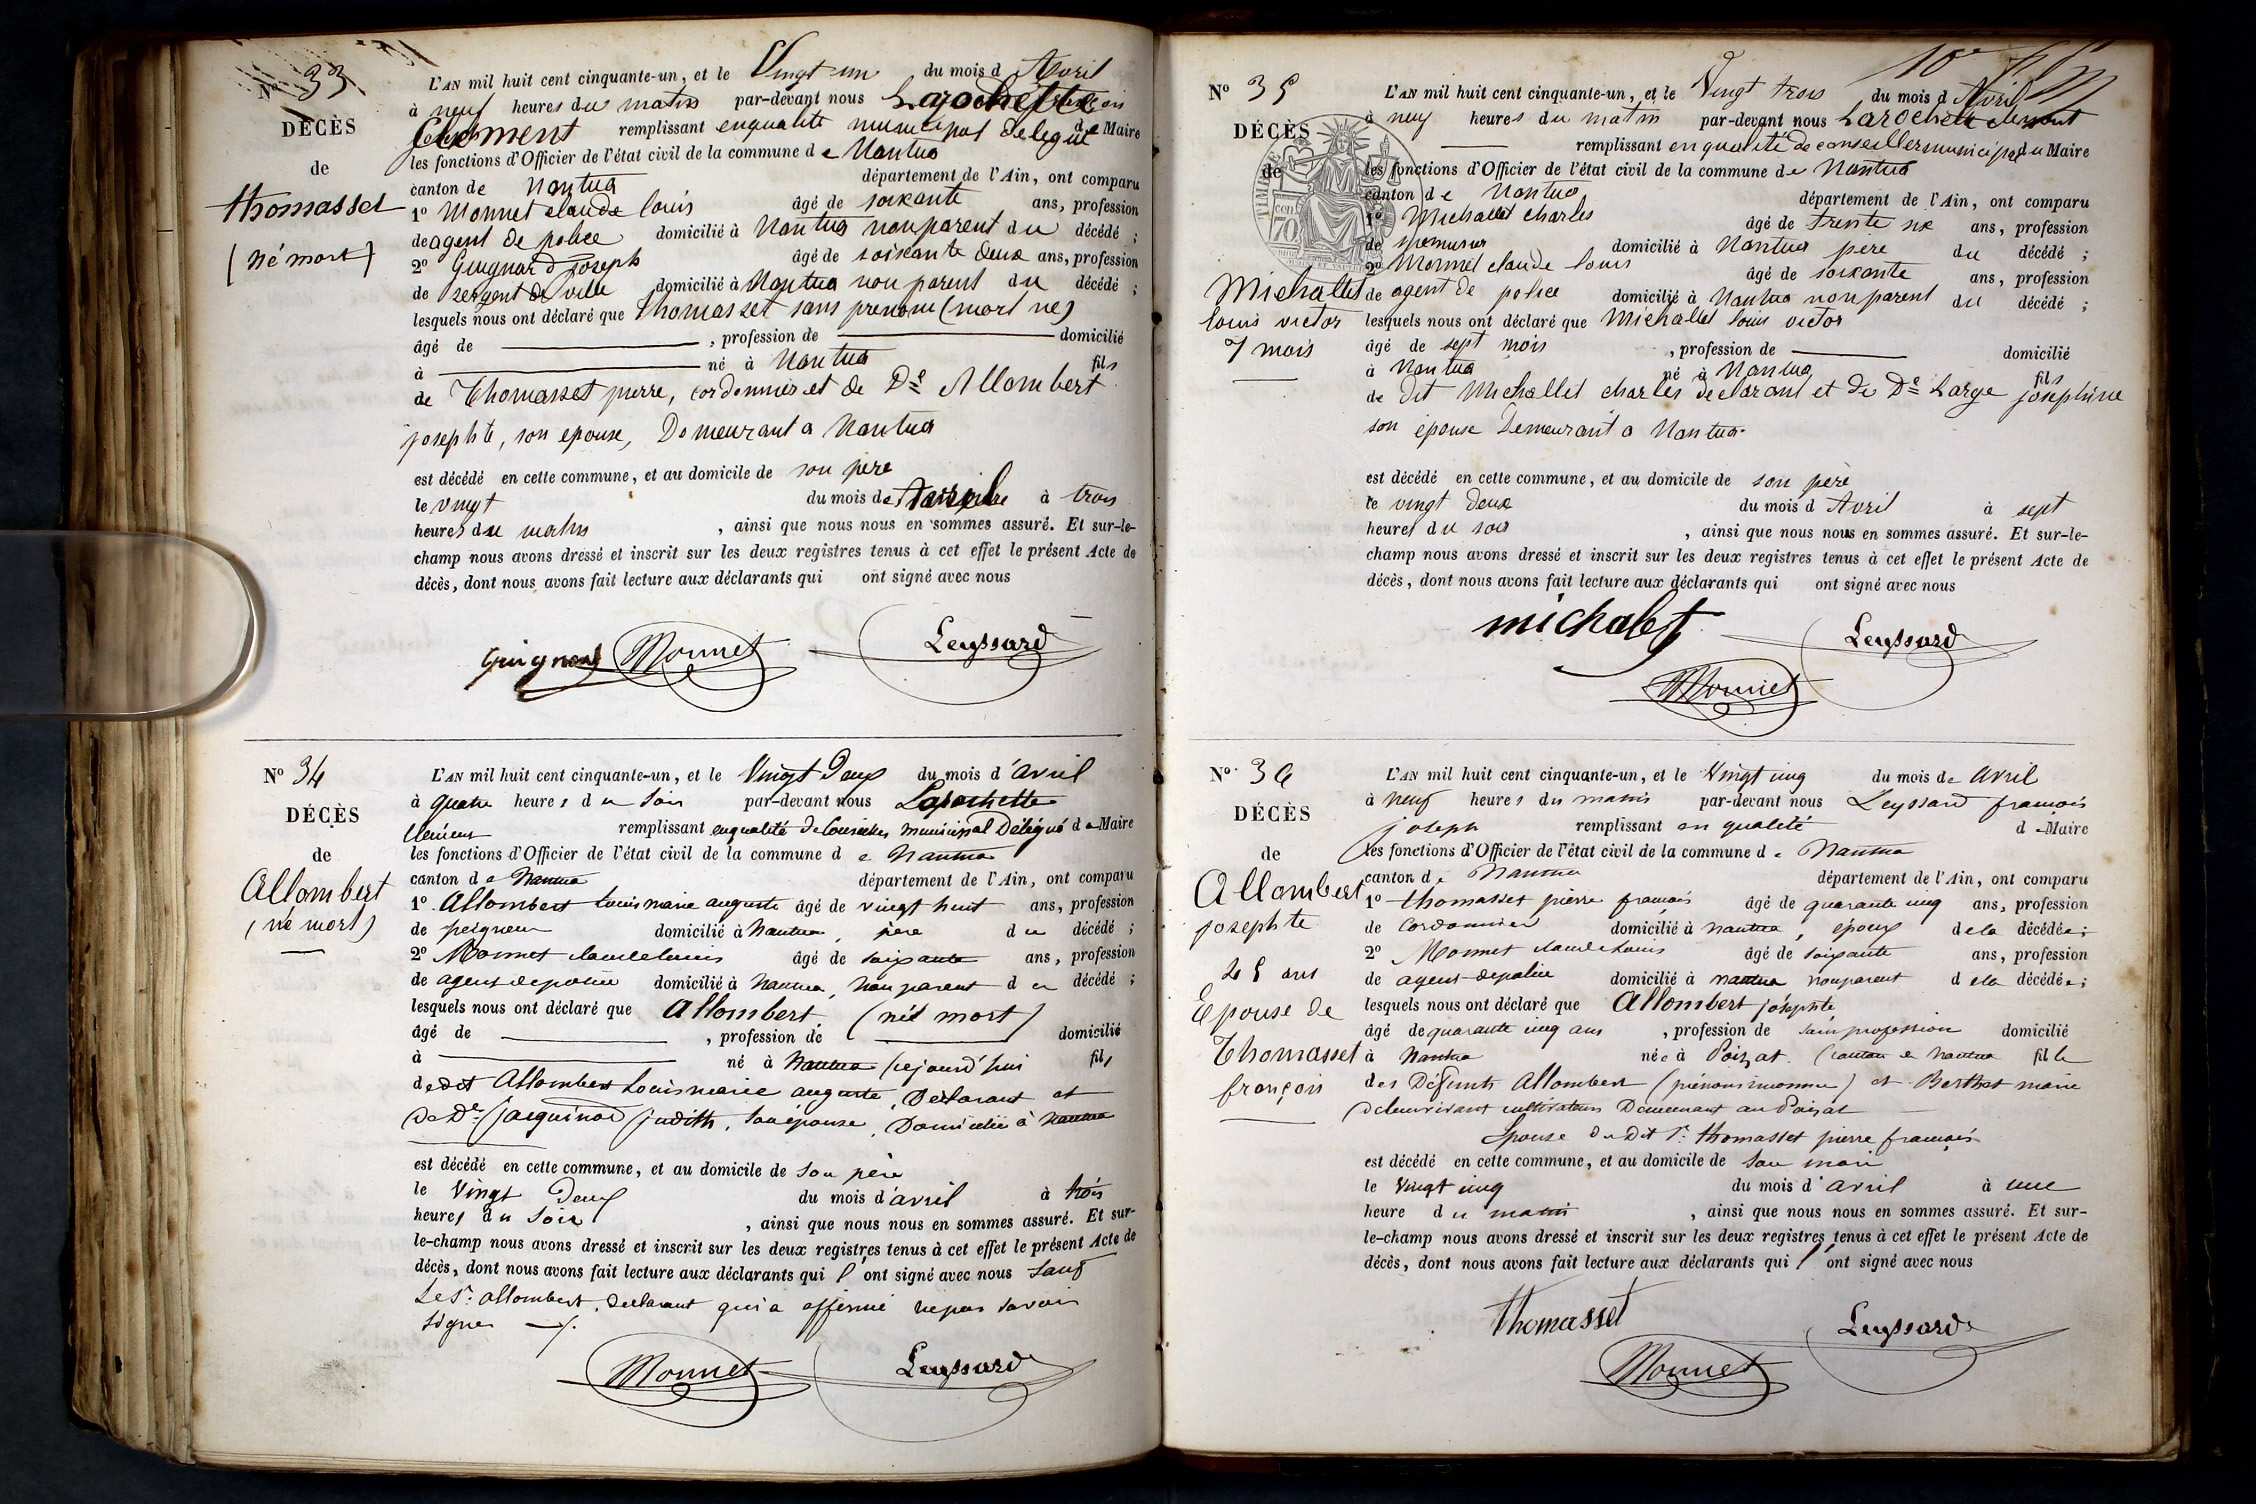 Nº 33
DÉCÈS
de
thomasset
(né mort)
L'AN mil huit cent cinquante-un, et le Vingt un du mois d Avril
à neuf heures du matin par-devant nous Larochette
Clement remplissant enqualité municipal delegué de Maire
les fonctions d'Officier de l'état civil de la commune de Nantua
canton de Nantua département de l'Ain, ont comparu
1º Monnet claude louis âgé de soixante ans, profession
de agent de police domicilié à Nantua non parent du décédé ;
2º Guignard joseph âgé de soixante deux ans, profession
de sergent de ville domicilié à Nantua non parent du décédé ;
lesquels nous ont déclaré que Thomasset sans prenom (mort né)
âgé de , profession de domicilié
à né à Nantua fils
de Thomasset pierre, cordonnier et de De Allombert
josephte, son epouse, Demeurant a Nantua
est décédé en cette commune, et au domicile de son père
le vingt du mois de Avril à trois
heures du matin , ainsi que nous nous en sommes assuré. Et sur-le-
champ nous avons dressé et inscrit sur les deux registres tenus à cet effet le présent Acte de
décès, dont nous avons fait lecture aux déclarants qui ont signé avec nous
Guignard Monnet Leyssard
Nº 34
DÉCÈS
de
Allombert
(né mort)
L'AN mil huit cent cinquante-un, et le Vingt Deux du mois d'avril
à quatre heures du soir par-devant nous Larochette
Clément remplissant enqualité de Conseiller municipal Délégué de Maire
les fonctions d'Officier de l'état civil de la commune de Nantua
canton de Nantua département de l'Ain, ont comparu
1º Allombert Louis marie auguste âgé de vingt huit ans, profession
de peigneur domicilié à Nantua, père du décédé ;
2º Monnet claude louis âgé de soixante ans, profession
de agent de police domicilié à Nantua, non parent du décédé ;
lesquels nous ont déclaré que Allombert (né mort)
âgé de , profession de domicilié
à né à Nantua cejourd'hui fils
de dit Allombert Louis marie auguste, Déclarant et
De De jacquinod judith, son épouse, Domiciliée à Nantua
est décédé en cette commune, et au domicile de son père
le Vingt Deux du mois d'avril à trois
heures du soir , ainsi que nous nous en sommes assuré. Et sur-
le-champ nous avons dressé et inscrit sur les deux registres tenus à cet effet le présent Acte de
décès, dont nous avons fait lecture aux déclarants qui l'ont signé avec nous sauf
Le Sr allombert, declarant qui a affirmé nepas savoir
signer
Monnet Leyssard
Nº 35
DÉCÈS
de
Michallet
louis victor
7 mois
L'AN mil huit cent cinquante-un, et le Vingt trois du mois d Avril
à neuf heures du matin par-devant nous Larochette clement
remplissant en qualité de conseiller municipal du Maire
les fonctions d'Officier de l'état civil de la commune de Nantua
canton de Nantua département de l'Ain, ont comparu
1º Michallet charles âgé de trente six ans, profession
de menuisier domicilié à Nantua père du décédé ;
2º Monnet claude louis âgé de soixante ans, profession
de agent de police domicilié à Nantua non parent du décédé ;
lesquels nous ont déclaré que Michallet louis victor
âgé de sept mois , profession de domicilié
à Nantua né à Nantua fils
de dit Michallet charles declarant et de De Large josephine
son épouse Demeurant a Nantua
est décédé en cette commune, et au domicile de son père
le vingt deux du mois d Avril à sept
heures du soir , ainsi que nous nous en sommes assuré. Et sur-le-
champ nous avons dressé et inscrit sur les deux registres tenus à cet effet le présent Acte de
décès, dont nous avons fait lecture aux déclarants qui ont signé avec nous
michalet Leyssard
Monnet
Nº 36
DÉCÈS
de
Allombert
josephte
45 ans
Epouse de
Thomasset
françois
L'AN mil huit cent cinquante-un, et le Vingt cinq du mois de avril
à neuf heures du matin par-devant nous Leyssard françois
joseph remplissant en qualité de Maire
les fonctions d'Officier de l'état civil de la commune de Nantua
canton de Nantua département de l'Ain, ont comparu
1º thomasset pierre françois âgé de quarante cinq ans, profession
de cordonnier domicilié à Nantua, époux de la décédée ;
2º Monnet claude louis âgé de soixante ans, profession
de agent de police domicilié à Nantua non parent de la décédée ;
lesquels nous ont déclaré que Allombert josephte
âgé de quarante cinq ans , profession de sans profession domicilié
à Nantua née à Poizat (canton de Nantua fille
des Défunts Allombert (prénoms inconnu) et Berthet marie
De leur vivant cultivateurs Demeurant au Poizat
Epouse du Dit Sr thomasset pierre françois
est décédé en cette commune, et au domicile de son mari
le vingt cinq du mois d'avril à une
heure du matin , ainsi que nous nous en sommes assuré. Et sur-
le-champ nous avons dressé et inscrit sur les deux registres tenus à cet effet le présent Acte de
décès, dont nous avons fait lecture aux déclarants qui l'ont signé avec nous
Thomasset Leyssard
Monnet